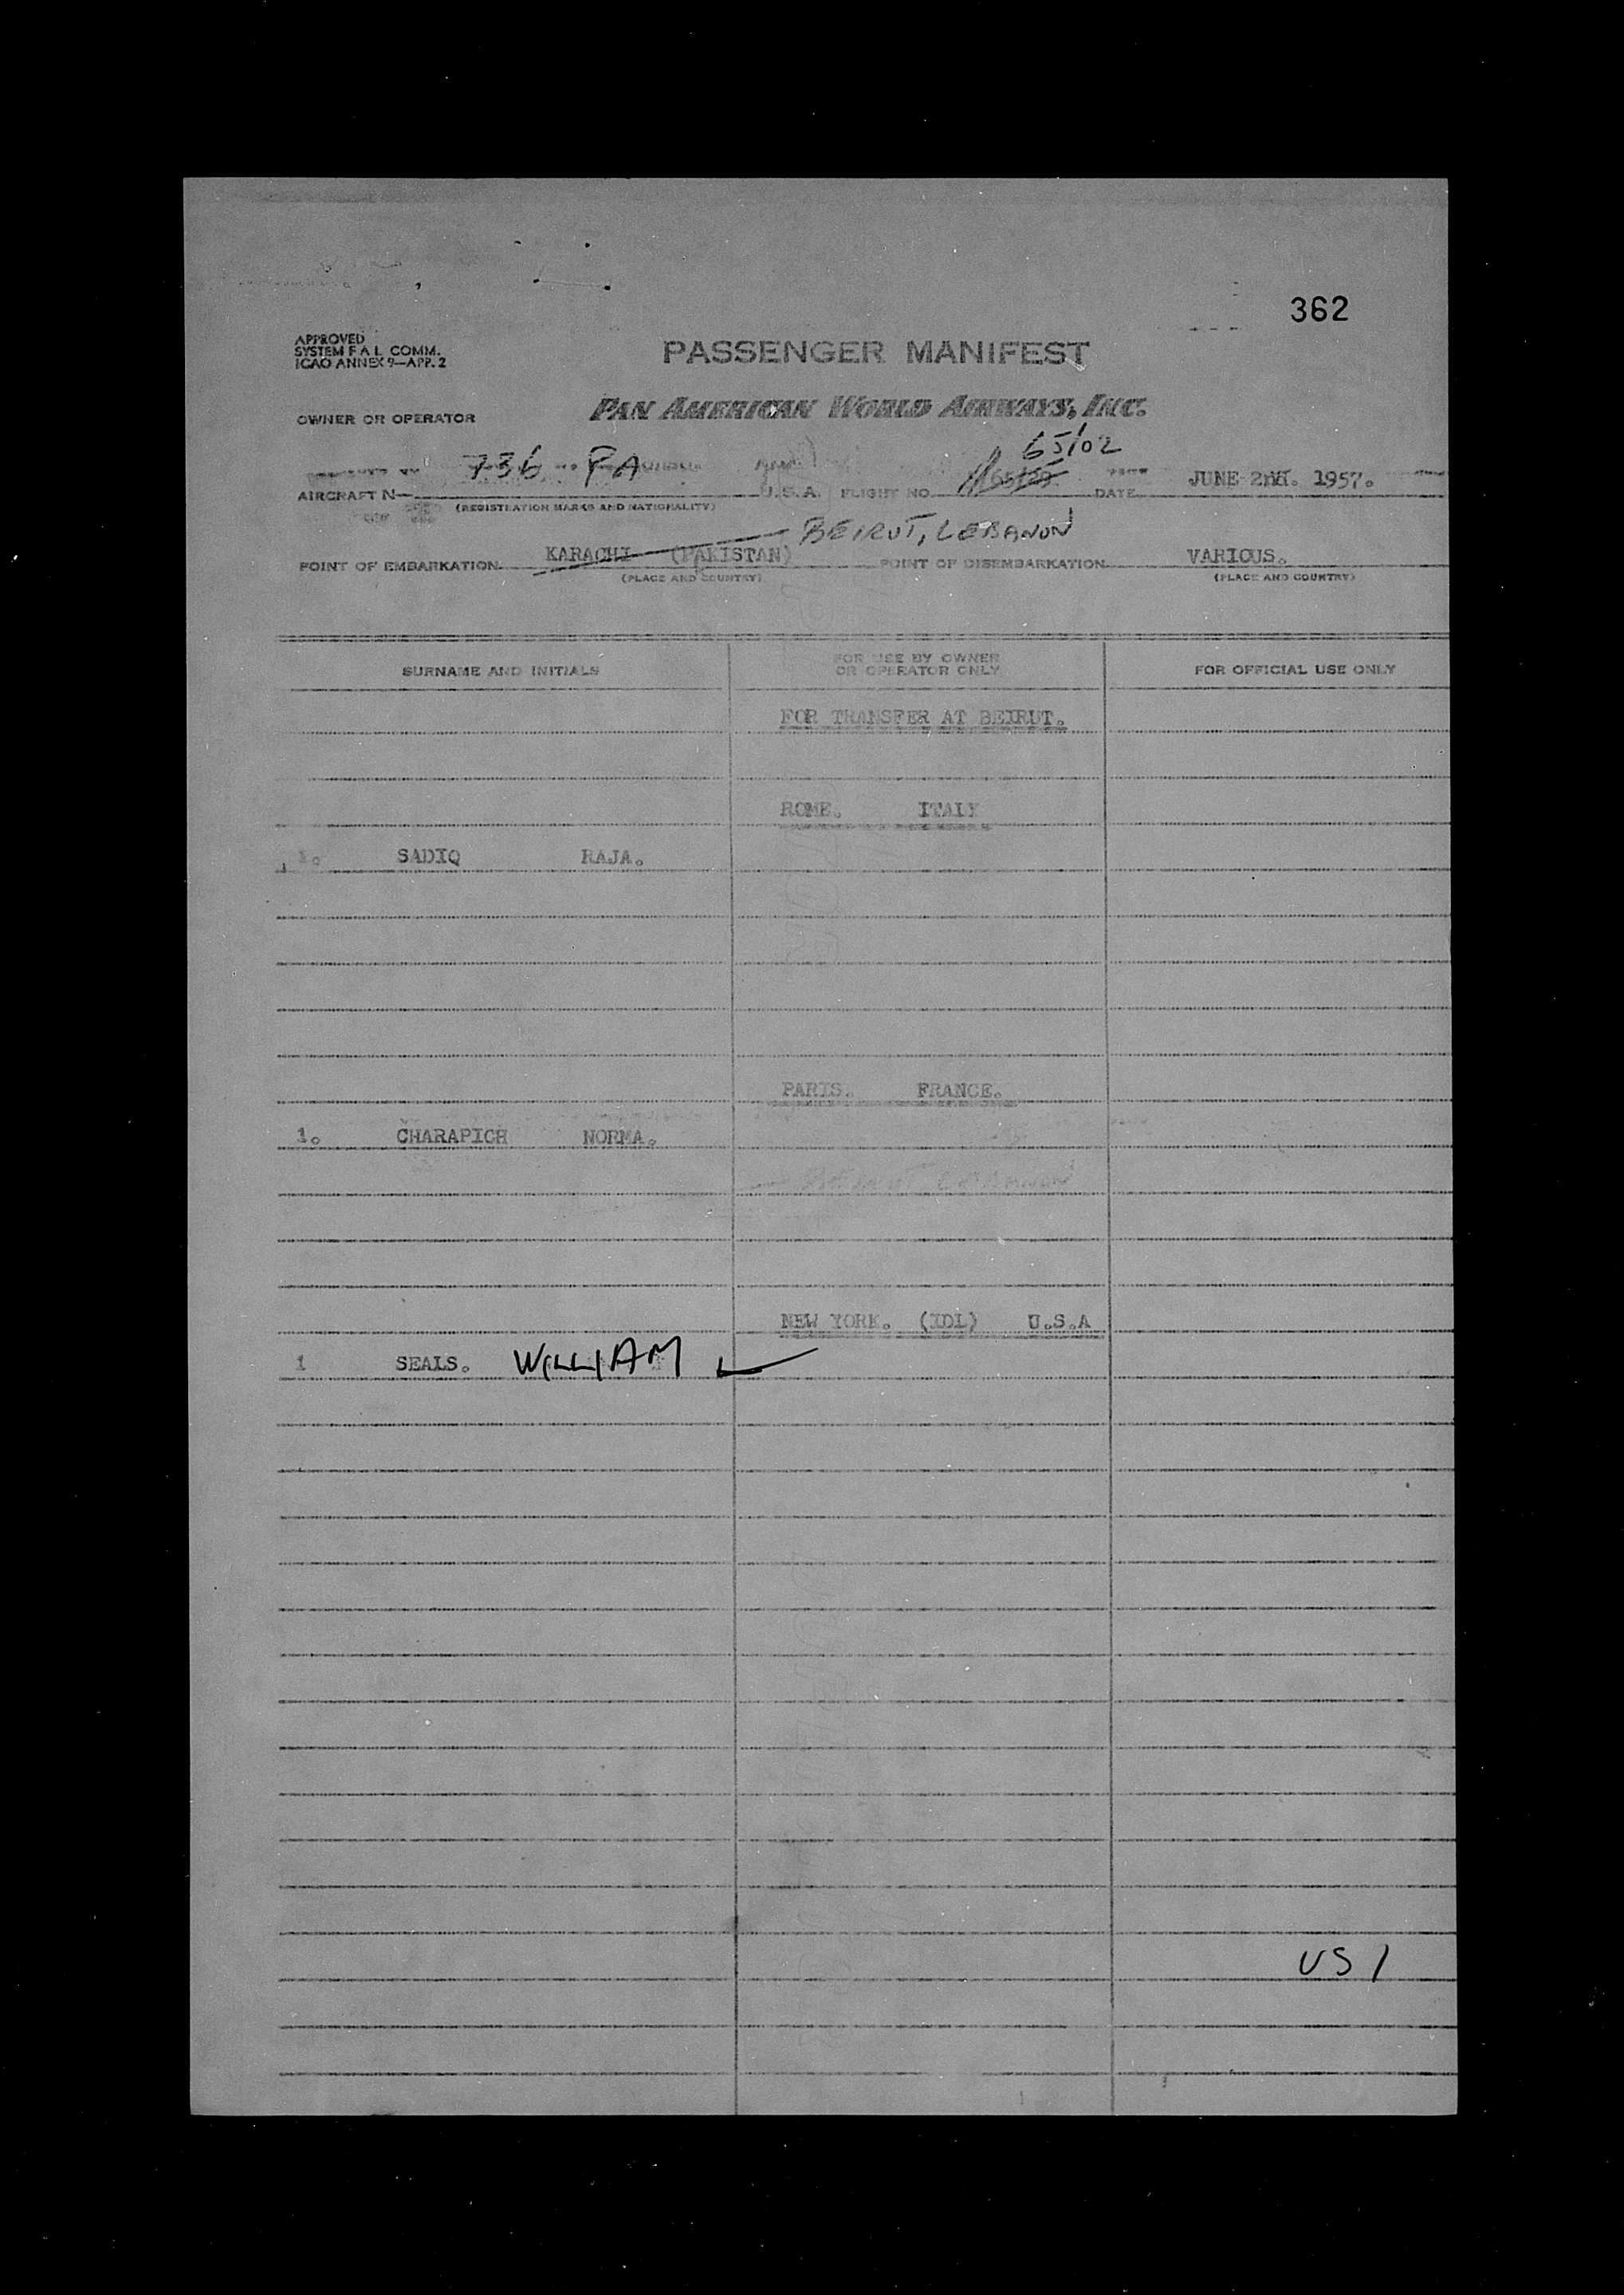 362
APPROVED
SYSTEM F A L COMM.
ICAO ANNEX 9—APP. 2
PASSENGER MANIFEST
OWNER OR OPERATOR PAN AMERICAN WORLD AIRWAYS, INC.
65/02
AIRCRAFT N— 736 PA U.S.A. FLIGHT NO. DATE JUNE 2nd. 1957.
(REGISTRATION MARKS AND NATIONALITY)
BEIRUT, LEBANON
POINT OF EMBARKATION KARACHI (PAKISTAN) POINT OF DISEMBARKATION VARIOUS.
(PLACE AND COUNTRY) (PLACE AND COUNTRY)
SURNAME AND INITIALS
FOR USE BY OWNER
OR OPERATOR ONLY
FOR OFFICIAL USE ONLY
FOR TRANSFER AT BEIRUT.
ROME. ITALY
1. SADIQ RAJA.
PARIS. FRANCE.
1. CHARAPICH NORMA.
BEIRUT, LEBANON
NEW YORK. (IDL) U.S.A
1 SEALS. WILLIAM
US 1